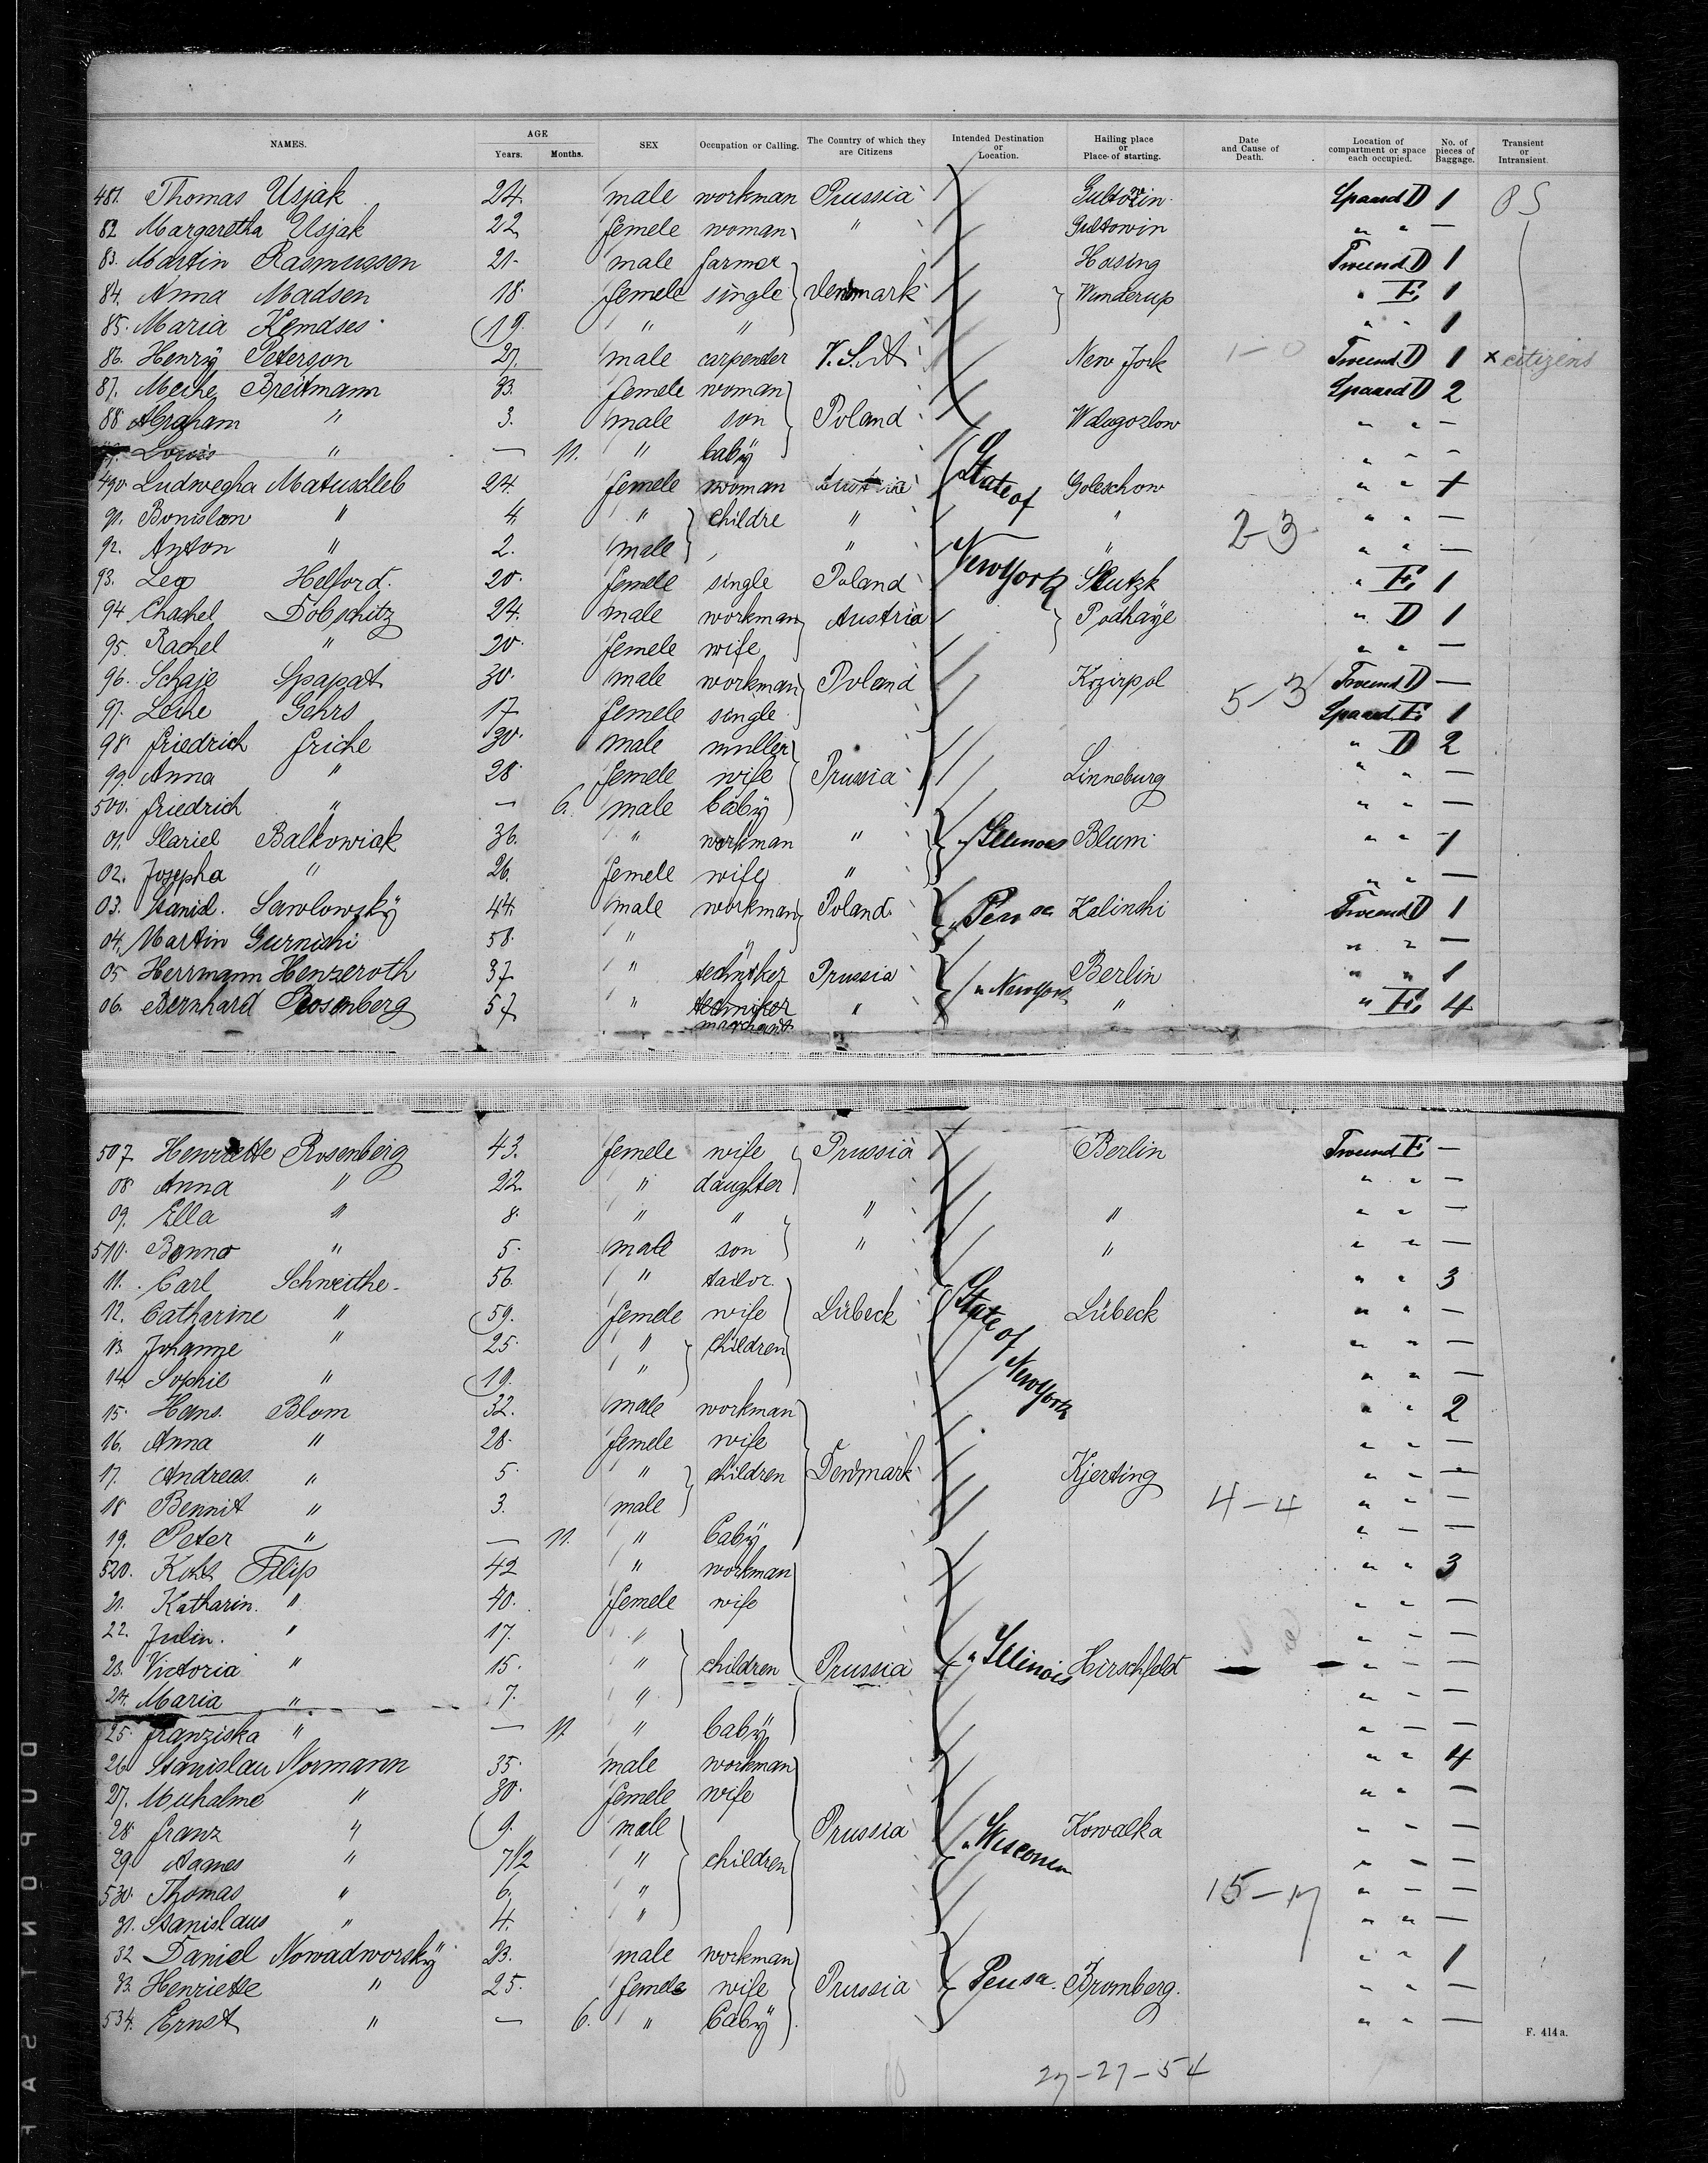 NAMES. AGE Years. Months. SEX Occupation or Calling. The Country of which they are Citizens Intended Destination or Location. Hailing place or Place of starting. Date and Cause of Death. Location of compartment or space each occupied. No. of pieces of Baggage. Transient or Intransient.
481. Thomas Usjak 24. male workman Prussia Gultowin Spaard D 1
82 Margaretha Usjak 22 femele woman " Gultowin " " —
83. Martin Rasmussen 21. male farmer Hosing Tweend D 1
84. Anna Madsen 18. femele single Denmark Wunderup " E. 1
85. Maria Kemdses 19. " " " " 1
86. Henry Peterson 27. male carpender V.S.A New Jork 1-0 Tweend D 1 x citizens
87. Meche Breitmann 33. femele woman Spaard D 2
88 Abraham " 3. male son Poland Wdugozlow " " —
89. Louis " — 11. " babÿ " " —
490. Ludwegha Matuscleb 24. femele woman Austria State of Goleschow " " 1
91. Bonislon " 4. " childre " " 2-3 " " —
92. Anton " 2. male " " " " —
93. Lea Helford. 20. femele single Poland New York Slutzk " E. 1
94 Chachel Dobschitz 24. male workman Austria Podhaÿe " D 1
95. Rachel " 20. femele wife " " —
96. Schaje Spapat 30. male workman Poland Krzirpol 5-3 Tweend D —
97. Leihe Gehrs 17 femele single Spaard E. 1
98. friedrich friche 30. male muller " D 2
99. Anna " 28 femele wife Prussia Linneburg " " —
500. friedrich " — 6. male babÿ " " —
01. Slariel Balkowiak 36. " workman " " Illinois Blum " " 1
02. Josepha " 26. femele wife " " " —
03. Stanisl. Sawlowzkÿ 44. male workman Poland " Pensa Kalinshi Tweend D 1
04. Martin Gurnichi 58. " " " " —
05 Herrmann Henzeroth 37 " techniker Prussia " New York Berlin " " 1
06. Bernhard Rosenberg 57 " techniker merchant " " " E. 4
507 Henriette Rosenberg 43. femele wife Prussia Berlin Tweend E. —
08 Anna " 22 " daughter " " —
09. Ella " 8. " " " " " " —
510. Benno " 5. male son " " " " —
11. Carl Schweithe 56. " tailor " " 3
12. Catharine " 59. femele wife Lübeck State of Lübeck " " —
13. Johanne " 25. " children " " —
14. Sophie " 19. " New York " " —
15. Hans. Blom 32. male workman " " 2
16. Anna " 28. femele wife " " —
17. Andreas. " 5. " children Denmark Kjerting " " —
18 Bennit " 3. male 4-4 " " —
19. Peter " — 11. " babÿ " — —
520. Kohs Filip 42 " workman " " 3
21. Katharin. " 40. femele wife " " —
22. Julin. " 17. " " " —
23. Victoria " 15. " children Prussia " Illinois Hirschfeldt " " —
24. Maria " 7. " " " —
25. franziska " — 11 " babÿ " — —
26 Stanislau Normann 35. male workman " " 4
27. Muhalme " 30. femele wife " " —
28 franz " 9. male Prussia " Wisconsin Kowalka " " —
29. Agnes " 7 1/2 " children " " —
530. Thomas " 6. " 15-17 " " —
31. Stanislaus " 4. " " " —
32 Daniel Nowadworskÿ 23. male workman " " 1
33. Henriette " 25. femele wife Prussia Pensa. Bromberg. " " —
534. Ernst " — 6. " babÿ " " —
F. 414a.
27-27-54
DUPONT SA